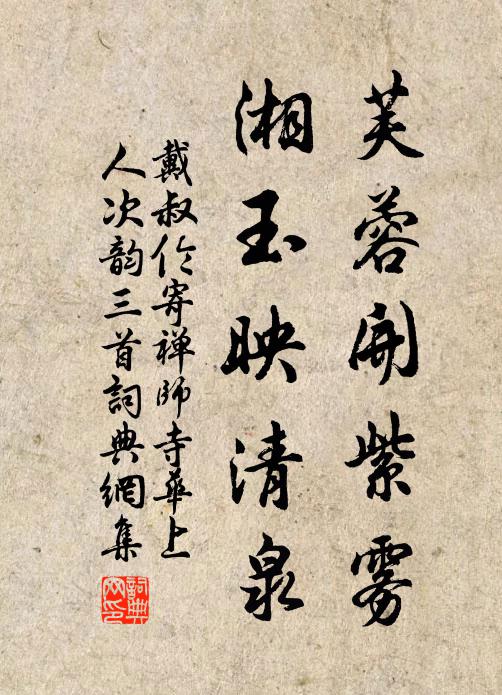 芙蓉開紫雾
湘玉映清泉
戴叔伦寄禅師寺華上
人次韵三首詞典網集
詞典网印